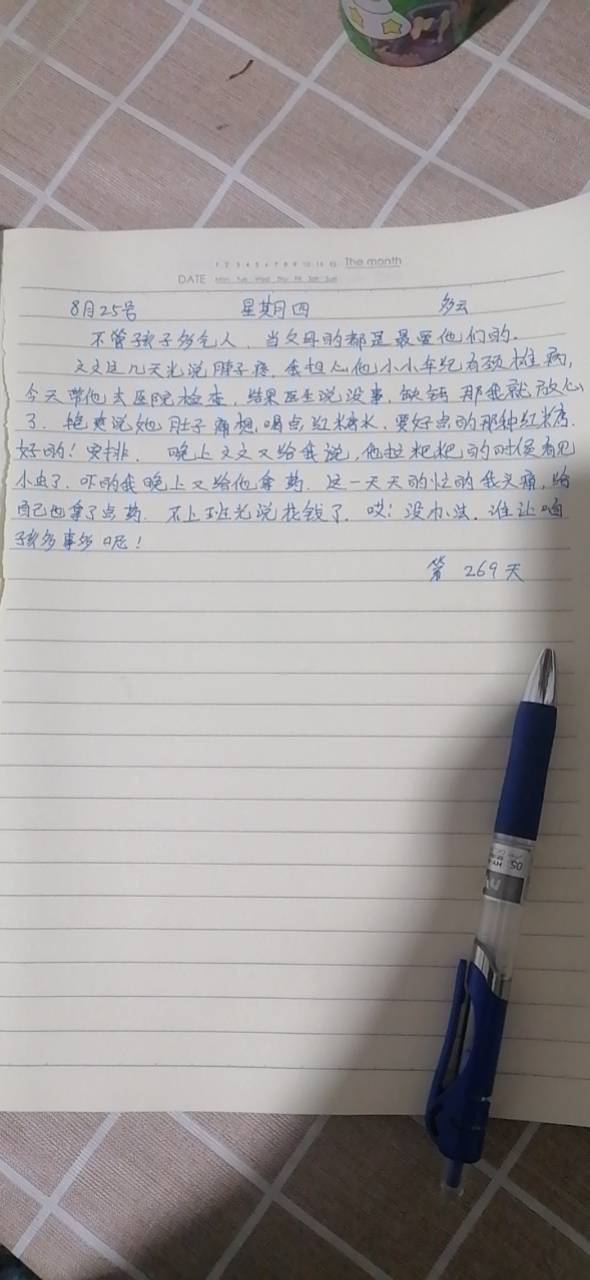 1 2 3 4 5 6 7 8 9 10 11 12 The month
DATE Mon Tue Wed Thu Fri Sat Sun
8月25号 星期四 多云
不管孩子多气人，当父母的都是最爱他们的.
文文这几天光说脖子疼，我担心他小小年纪有颈椎病,
今天带他去医院检查，结果医生说没事，缺钙 那我就放心
了. 艳爽说她肚子痛想喝点红糖水，要好点的那种红糖.
好的！安排. 晚上文文又给我说，他拉粑粑的时候看见
小虫了. 吓的我晚上又给他拿药. 这一天天的忙的我头痛，给
自己也拿了点药. 不上班光说找钱了. 哎！没办法. 谁让咱
孩多事多呢！
第 269天
05